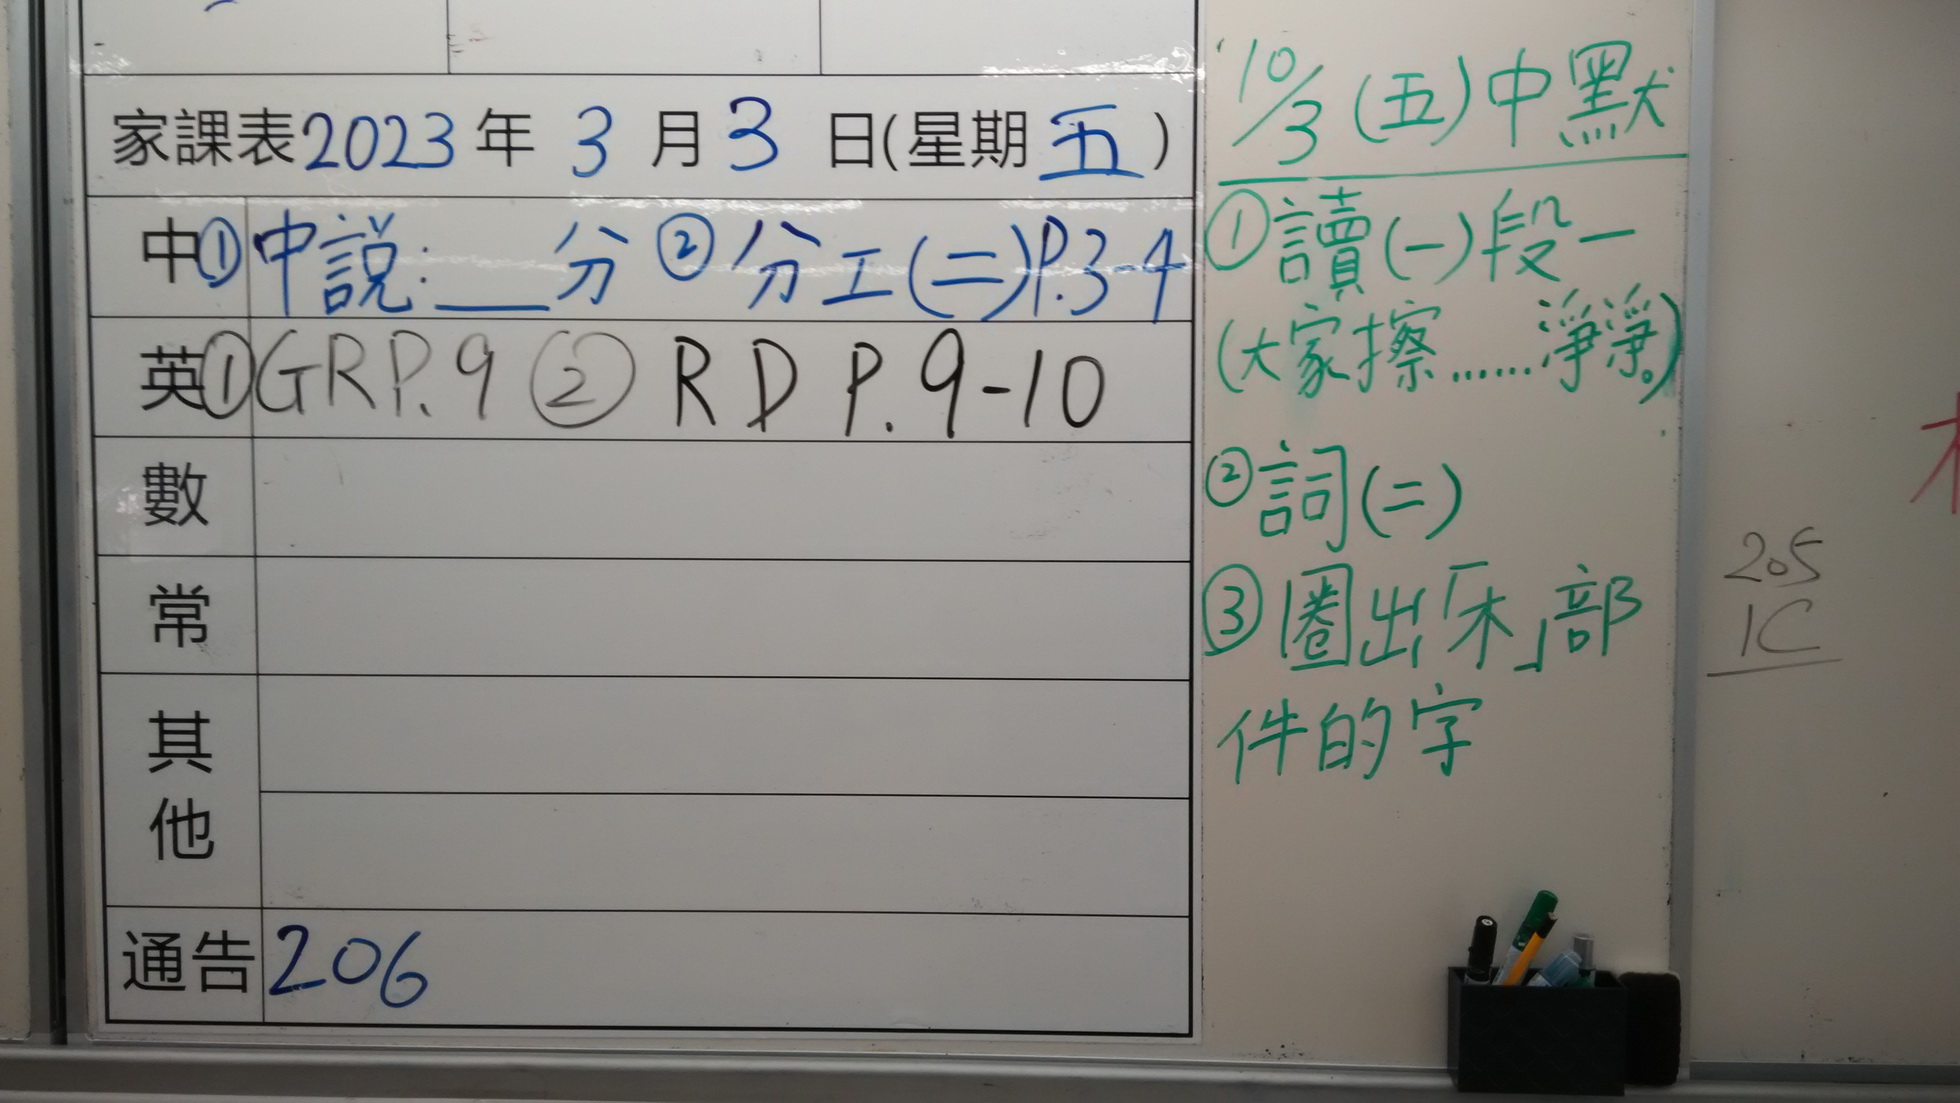 家課表2023年 3 月 3 日(星期五)
中 ①中説:___分 ②分工(二)P.3-4
英 ①GRP.9 ② RD P.9-10
數
常
其他
通告 206
10/3 (五) 中默
①讀(一)段一
(大家擦……淨淨。)
②詞(二)
③圈出「木」部
件的字
205
1C